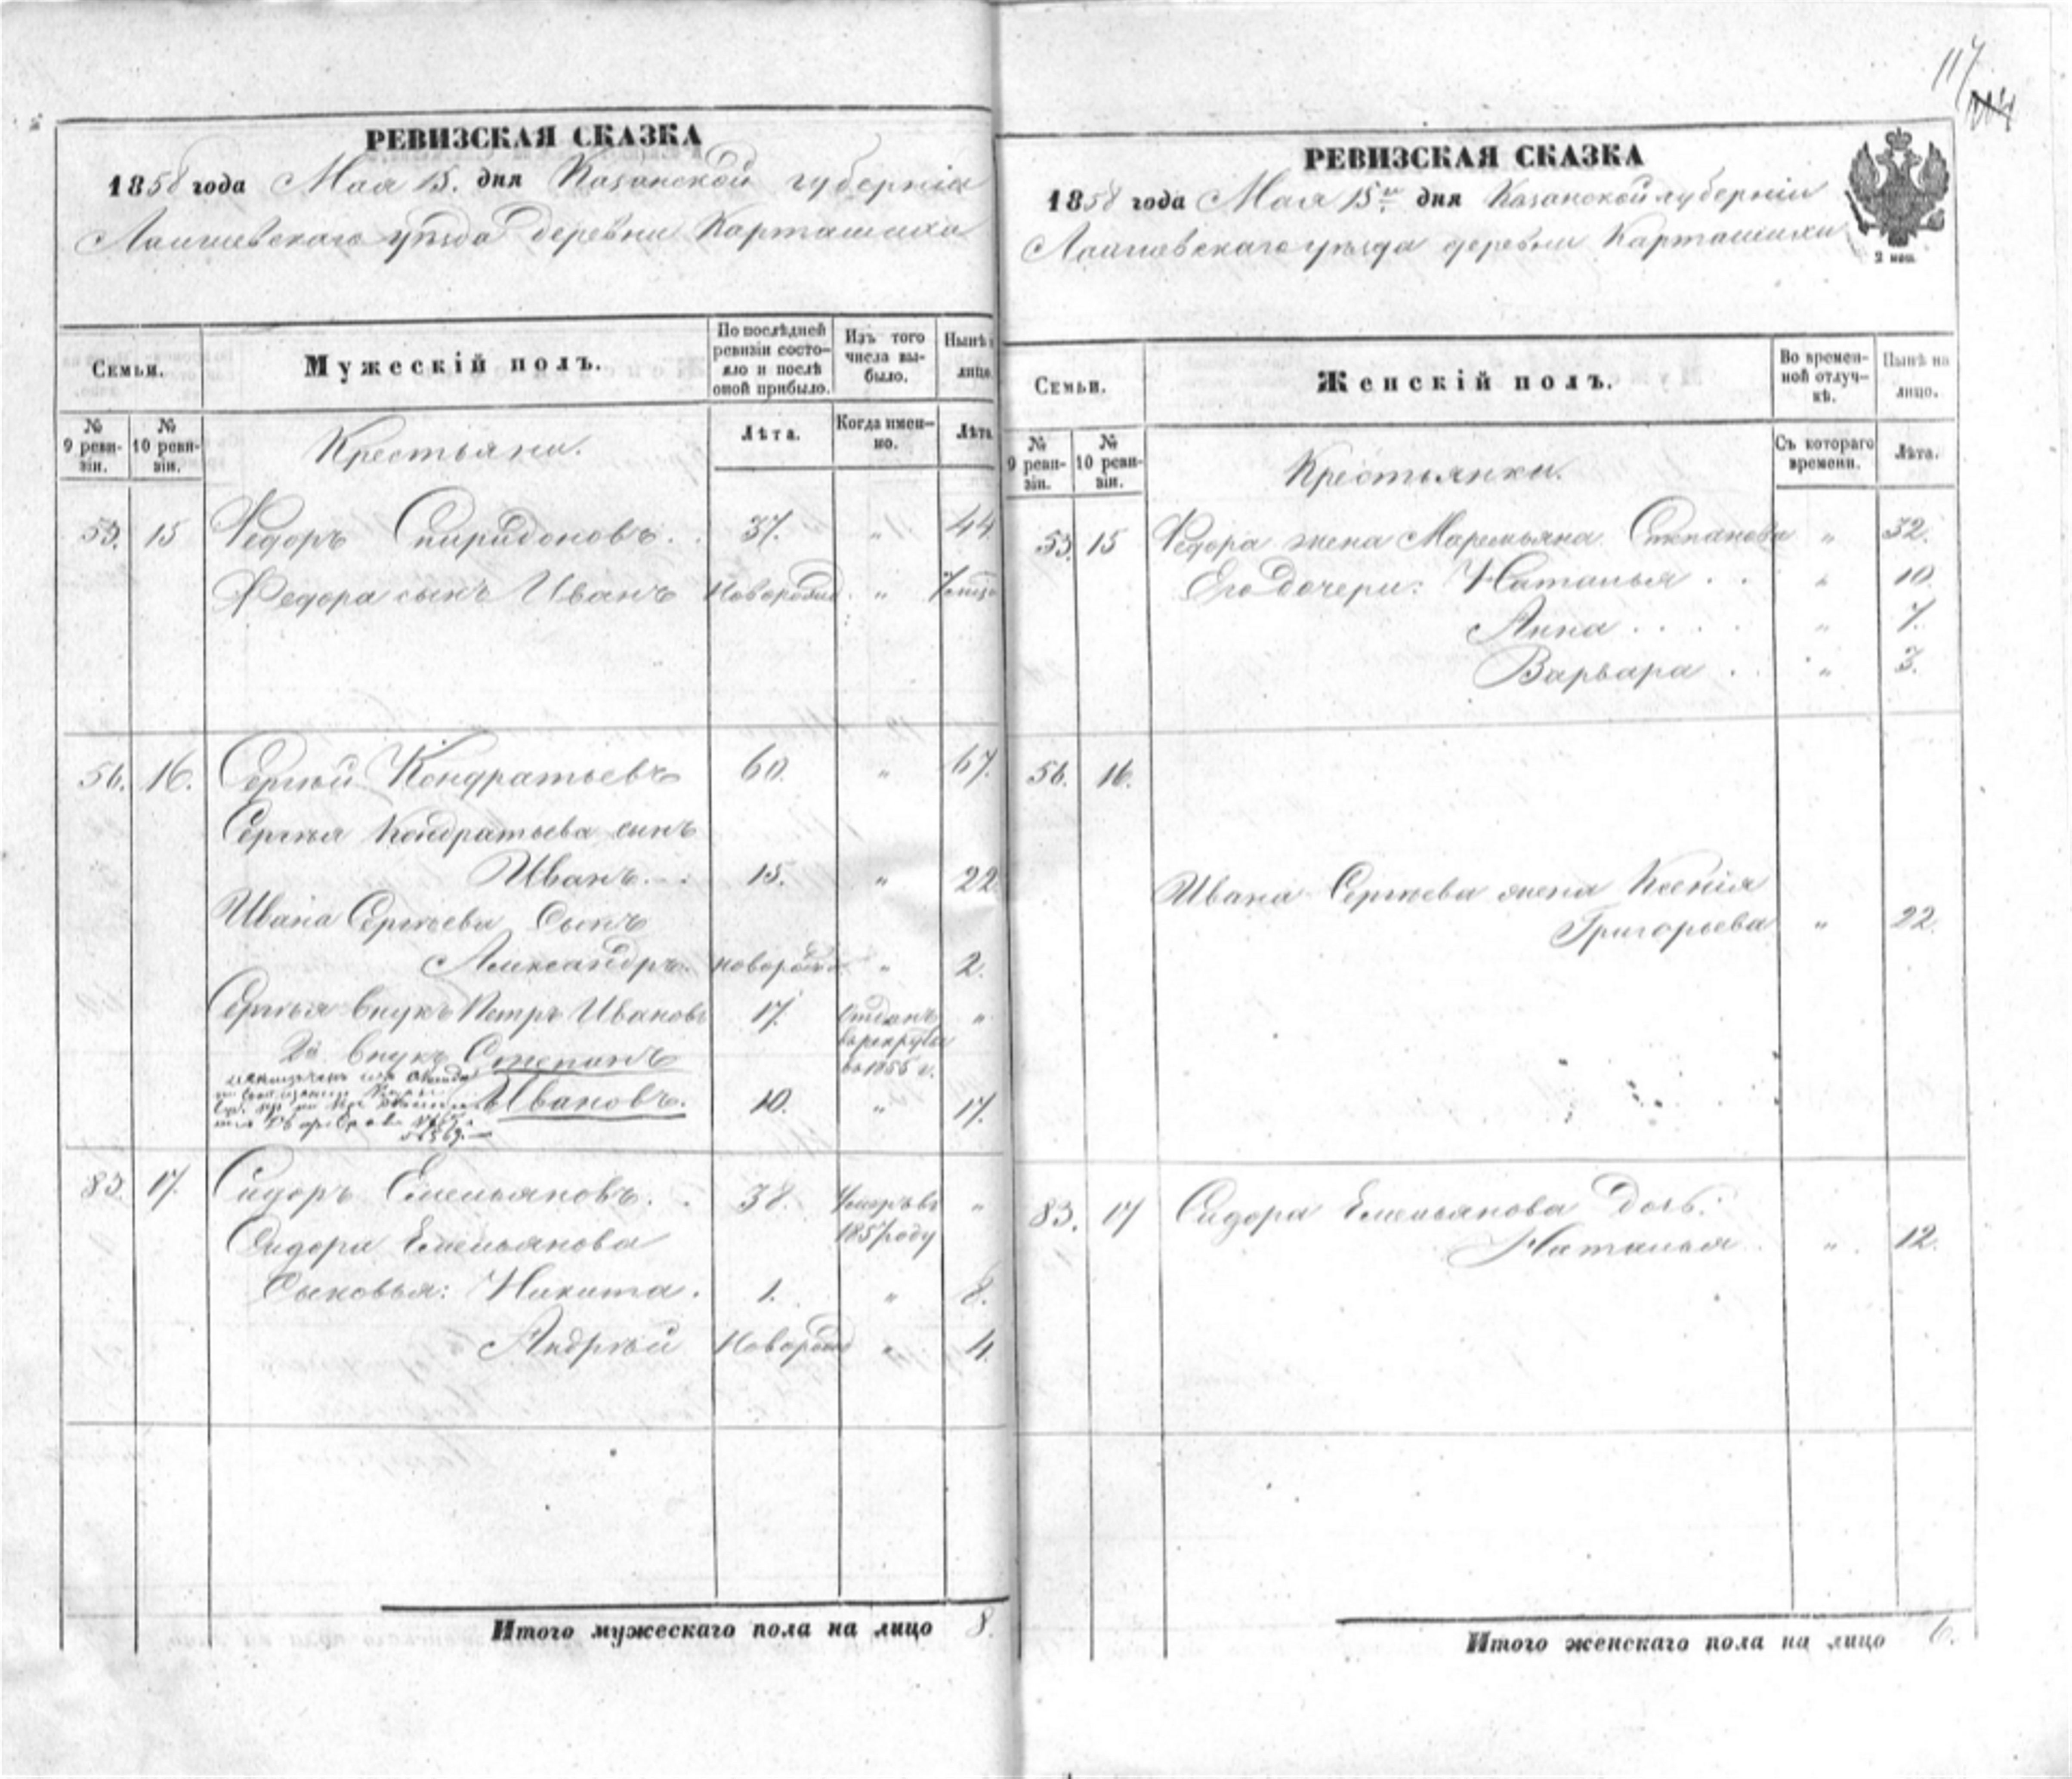 РЕВИЗСКАЯ СКАЗКА
1858 года Мая 15. дня Казанской губернiи
Лаишевскаго уѣзда деревни Карташихи
Семьи.
Мужескiй полъ.
По послѣдней ревизiи состояло и послѣ оной прибыло.
Изъ того числа выбыло.
Нынѣ лицо
№ 9 ревизiи.
№ 10 ревизiи.
Крестьяне.
Лѣта.
Когда именно.
Лѣта
53. 15 Ѳедоръ Спиридоновъ. . 37. " 44
Ѳедора сынъ Иванъ Новорожд. "
56. 16. Сергѣй Кондратьевъ 60. " 67.
Сергѣя Кондратьева сынъ
Иванъ. . . 15. " 22.
Ивана Сергѣева Сынъ
Александръ. новорожд " 2.
Сергѣя внукъ Петръ Ивановъ 17. Отданъ "
врекруты
2й внукъ Степанъ в 1855 г.
Ивановъ. 10. " 17.
83. 17. Сидоръ Емельяновъ. . 38. Умеръ въ "
1857 году
Сидора Емельянова
Сыновья: Никита. 1. " 8.
Андрѣй Новорожд " 4.
Итого мужескаго пола на лицо 8.
117
РЕВИЗСКАЯ СКАЗКА
1858 года Мая 15го дня Казанской губернiи
Лаишевскаго уѣзда деревни Карташихи
2 коп.
Семьи.
Женскiй полъ.
Во временной отлучкѣ.
Нынѣ на лицо.
№ 9 ревизiи.
№ 10 ревизiи.
Крестьянки.
Съ котораго времени.
Лѣта.
53. 15 Ѳедора жена Маремьяна Степанова " 32.
Его дочери: Наталья . . " 10.
Анна . . . . " 7.
Варвара . . " 3.
56. 16.
Ивана Сергѣева жена Ксенiя
Григорьева " 22.
83. 17 Сидора Емельянова дочь:
Наталья " 12.
Итого женскаго пола на лицо 6.